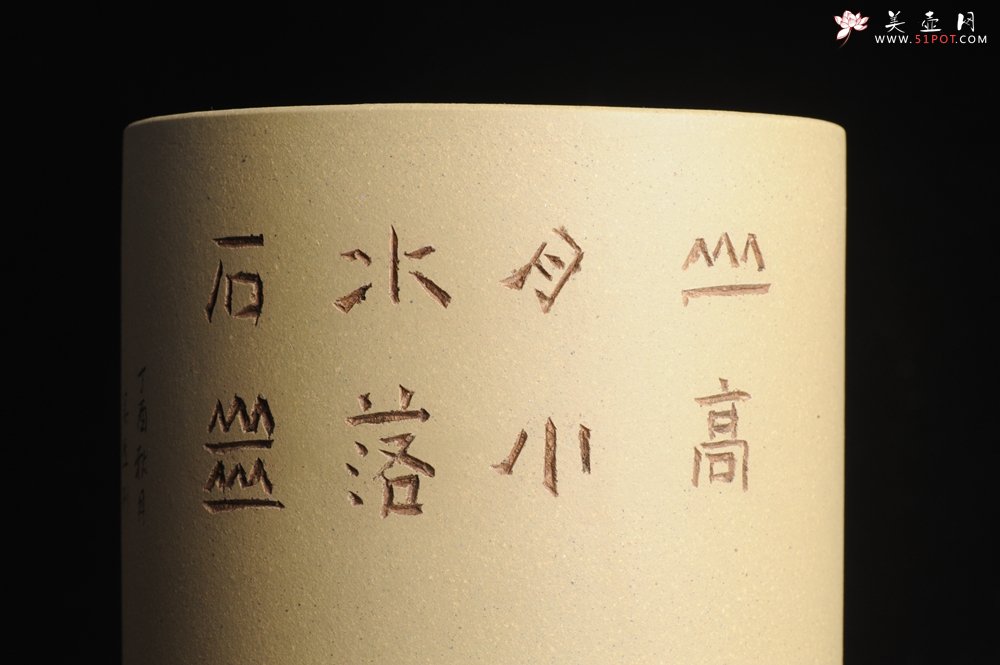 山高
月小
水落
石出
丁酉秋月
美壶网
WWW.51POT.COM